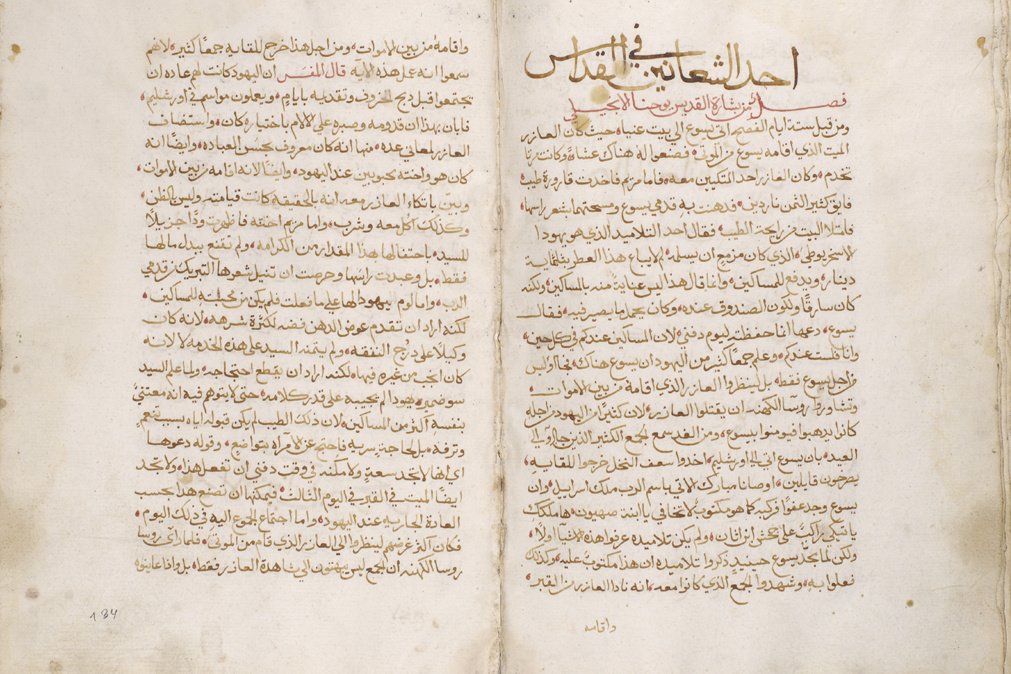 احد الشعانين في القداس
فصل من بشارة القديس يوحنا الانجيلي
ومن قبل ستة ايام الفصح اتى يسوع الى بيت عنيا حيث كان العازر
الميت الذي اقامه يسوع من الموتى فصنعوا له هناك عشاءً وكانت مرتا
تخدم وكان العازر احد المتكيين معه فاما مريم فاخدت قارورة طيب
فايق كثير الثمن ناردين فدهنت به قدمي يسوع ومسحتهما بشعر راسها
فامتلا البيت من رايحة الطيب فقال احد التلاميد الذي هو يهودا
الاسخريوطي الذي كان مزمع ان يسلمه لم لا يباع هذا العطر بثلثماية
دينار ويدفع للمساكين وانما قال هدا ليس عناية منه بالمساكين ولكنه
كان سارقًا ويكون الصندوق عنده وكان يحمل ما يصير فيه فقال
يسوع دعها انما حفظته ليوم دفني لان المساكين عندكم في كل حين
وانا فلست عندكم وعلم جمعًا كثير من اليهود ان يسوع هناك فجا وليس
من اجل يسوع فقط بل لينظروا العازر الذي اقامه من بين الاموات
وتشاوروا روسا الكهنه ان يقتلوا العازر لان كثير من اليهود من اجله
كانوا يدهبوا فيومنوا بيسوع ومن الغد سمع الجمع الكثير الذين جاوا الى
العيد بان يسوع اتي الى اورشليم اخدوا سعف النخل خرجوا للقايه
يصرخون قايلين اوصانا مبارك الاتي باسم الرب ملك اسراييل وان
يسوع وجد عفوًا فركبه كما هو مكتوب لا تخافي يا ابنة صهيون ها ملكك
ياتيكي راكبًا على جحش ابن اتان ولم يكن تلاميده عرفوا هذه الاشيآ اولًا
ولكن لما تمجد يسوع حينيدٍ ذكروا تلاميده ان هذا مكتوب عليه وكذلك
فعلوا به وشهدوا الجمع الذي كانوا معه انه نادا العازر من القبر
واقامه
واقامه من بين الاموات ومن اجل هذا خرج للقايه جمعًا كثير لانهم
سمعوا انه عمل هذه الآيه قال المفسر ان اليهود كانت لهم عاده ان
يجتمعوا قبل دبح الخروف وتقدمته بايامٍ ويعملون مواسم في اورشليم
فابان بهذا ان قدومه وصبره على الالام باختياره كان واستضاف
العازر لمعاني عده منها انه كان معروف بحسن العباده وايضًا انه
كان هو واخته محبوبين عند اليهود وايضًا لانه اقامه من بين الاموات
وبين باتكاء العازر معه انه بالحقيقه كانت قيامته وليس بالظن
وكذلك اكل معه وشرب واما مريم اخته فاظهرت ودًا جزيلًا
للسيد باحتفالها بهذا المقدار من الكرامه ولم تقنع ببدل مالها
فقط بل وعبدت راسها وحرصت ان تنيل شعرها التبريك من قدمي
الرب واما لوم يهودا لها على ما فعلت فلم يكن من محبته للمساكين
لكنه اراد ان تقدم عوض الدهن فضه لكثرة شرهه لانه كان
وكيلًا على درج النفقه ولم يتمنه السيد على هذه الخدمه لا لانه
كان انجب من غيره فيها لكنه اراد ان يقطع احتجاجه ولما علم السيد
سو ضمير يهودا لم يجيبه على قدر كلامه حتى لا يتوهم فيه انه معتنيًا
بنفسه اكثر من المساكين لان ذلك الطيب لم يكن قبوله اياه بسبب تنعمٍ
وترفه بل لحاجةٍ سريه فاحتج عن الامراه بتواضعٍ وقوله دعوها
اي انها لا تجد سعةٍ ولا مكنه في وقت دفني ان تفعل هذا ولا تجد
ايضًا الميت في القبر في اليوم الثالث فيمكنها ان تصنع هدا بحسب
العادة الجاريه عند اليهود واما اجتماع الجموع اليه في ذلك اليوم
فكان اكثر غرضهم لينظروا الى العازر الذي قام من الموتى فلما راى روسا
روسا الكهنه ان الجمع ليس يبهتون الى مشاهدة العازر فقط بل وانما عاينوه
134